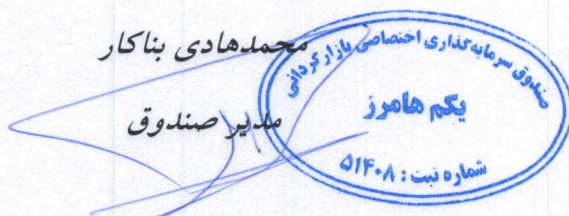 محمدهادی بناکار
مدیر صندوق
صندوق سرمایه گذاری اختصاصی بازارگردانی
یکم هامرز
شماره ثبت : ۵۱۴۰۸